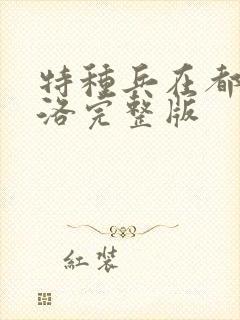 特種兵在都
洛完整版
紅裝